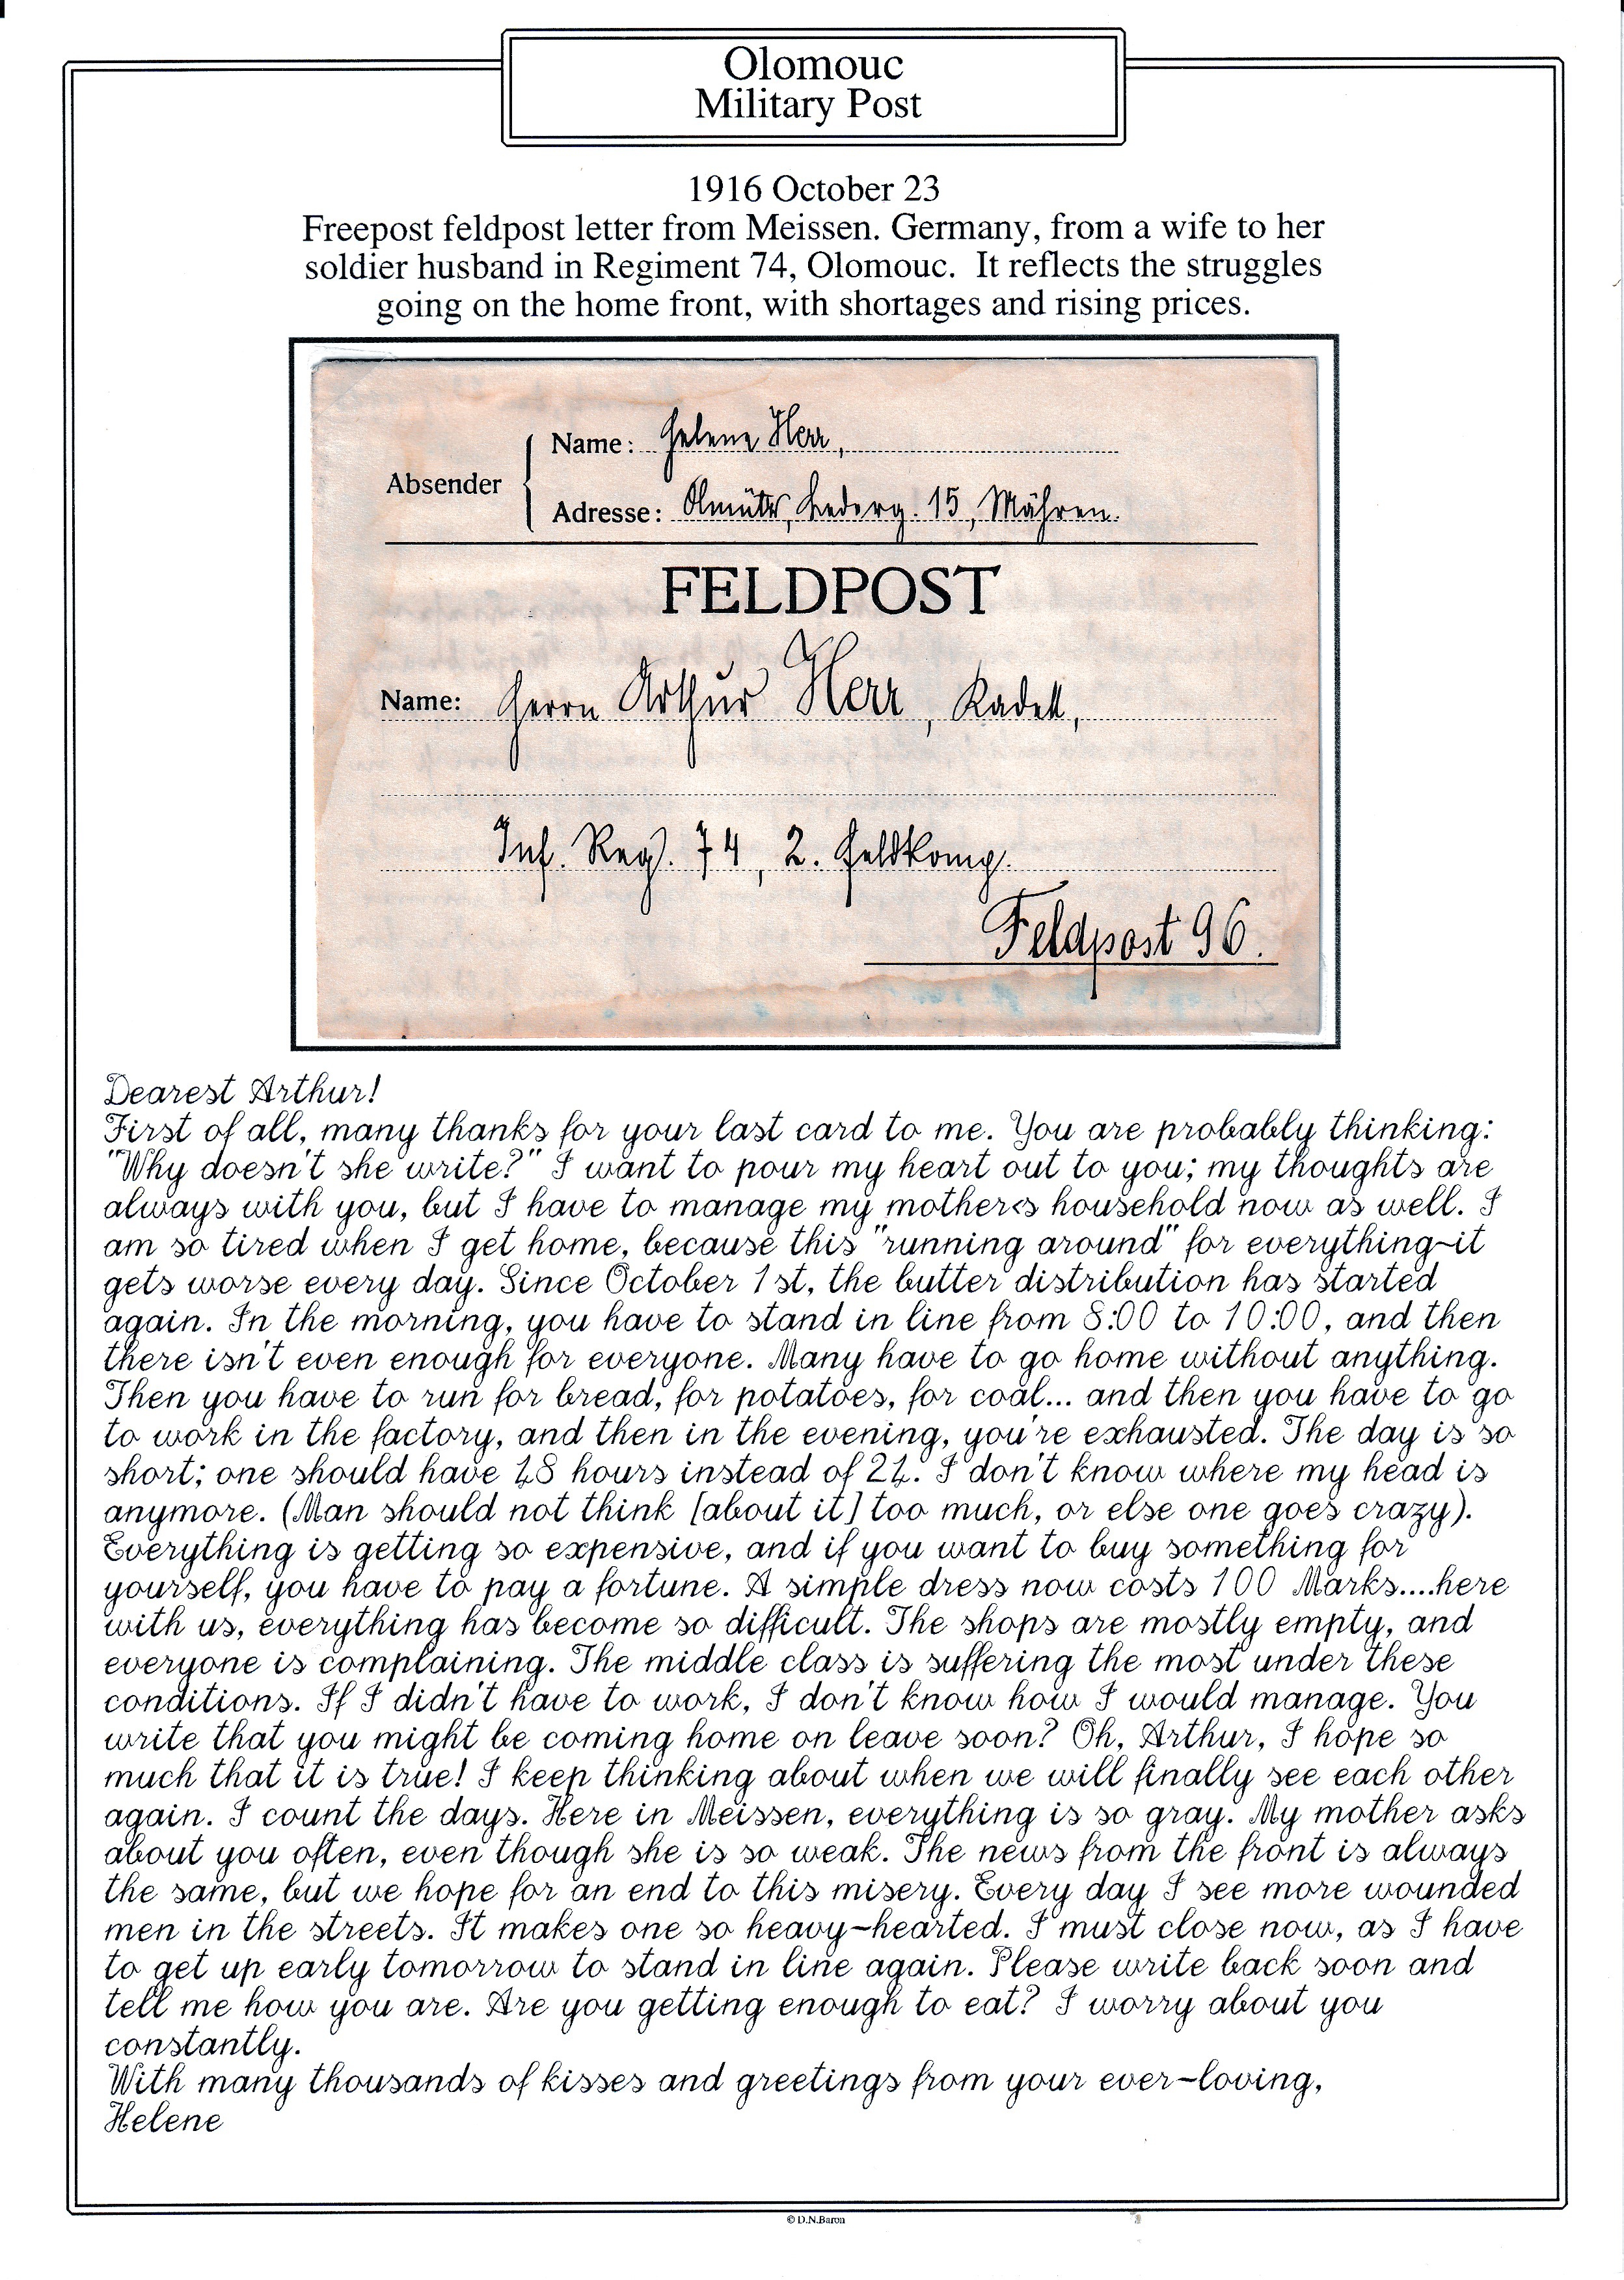 Olomouc
Military Post
1916 October 23
Freepost feldpost letter from Meissen. Germany, from a wife to her
soldier husband in Regiment 74, Olomouc. It reflects the struggles
going on the home front, with shortages and rising prices.
Absender
Name: Helene Herr,
Adresse: Olmütz, Lederg. 15, Mähren.
FELDPOST
Name: Herrn Arthur Herr, Kadett,
Inf. Regt. 74, 2. Feldkomp.
Feldpost 96.
Dearest Arthur!
First of all, many thanks for your last card to me. You are probably thinking:
"Why doesn't she write?" I want to pour my heart out to you; my thoughts are
always with you, but I have to manage my mother<s household now as well. I
am so tired when I get home, because this "running around" for everything-it
gets worse every day. Since October 1st, the butter distribution has started
again. In the morning, you have to stand in line from 8:00 to 10:00, and then
there isn't even enough for everyone. Many have to go home without anything.
Then you have to run for bread, for potatoes, for coal... and then you have to go
to work in the factory, and then in the evening, you're exhausted. The day is so
short; one should have 48 hours instead of 24. I don't know where my head is
anymore. (Man should not think [about it] too much, or else one goes crazy).
Everything is getting so expensive, and if you want to buy something for
yourself, you have to pay a fortune. A simple dress now costs 100 Marks....here
with us, everything has become so difficult. The shops are mostly empty, and
everyone is complaining. The middle class is suffering the most under these
conditions. If I didn't have to work, I don't know how I would manage. You
write that you might be coming home on leave soon? Oh, Arthur, I hope so
much that it is true! I keep thinking about when we will finally see each other
again. I count the days. Here in Meissen, everything is so gray. My mother asks
about you often, even though she is so weak. The news from the front is always
the same, but we hope for an end to this misery. Every day I see more wounded
men in the streets. It makes one so heavy-hearted. I must close now, as I have
to get up early tomorrow to stand in line again. Please write back soon and
tell me how you are. Are you getting enough to eat? I worry about you
constantly.
With many thousands of kisses and greetings from your ever-loving,
Helene
© D.N.Baron